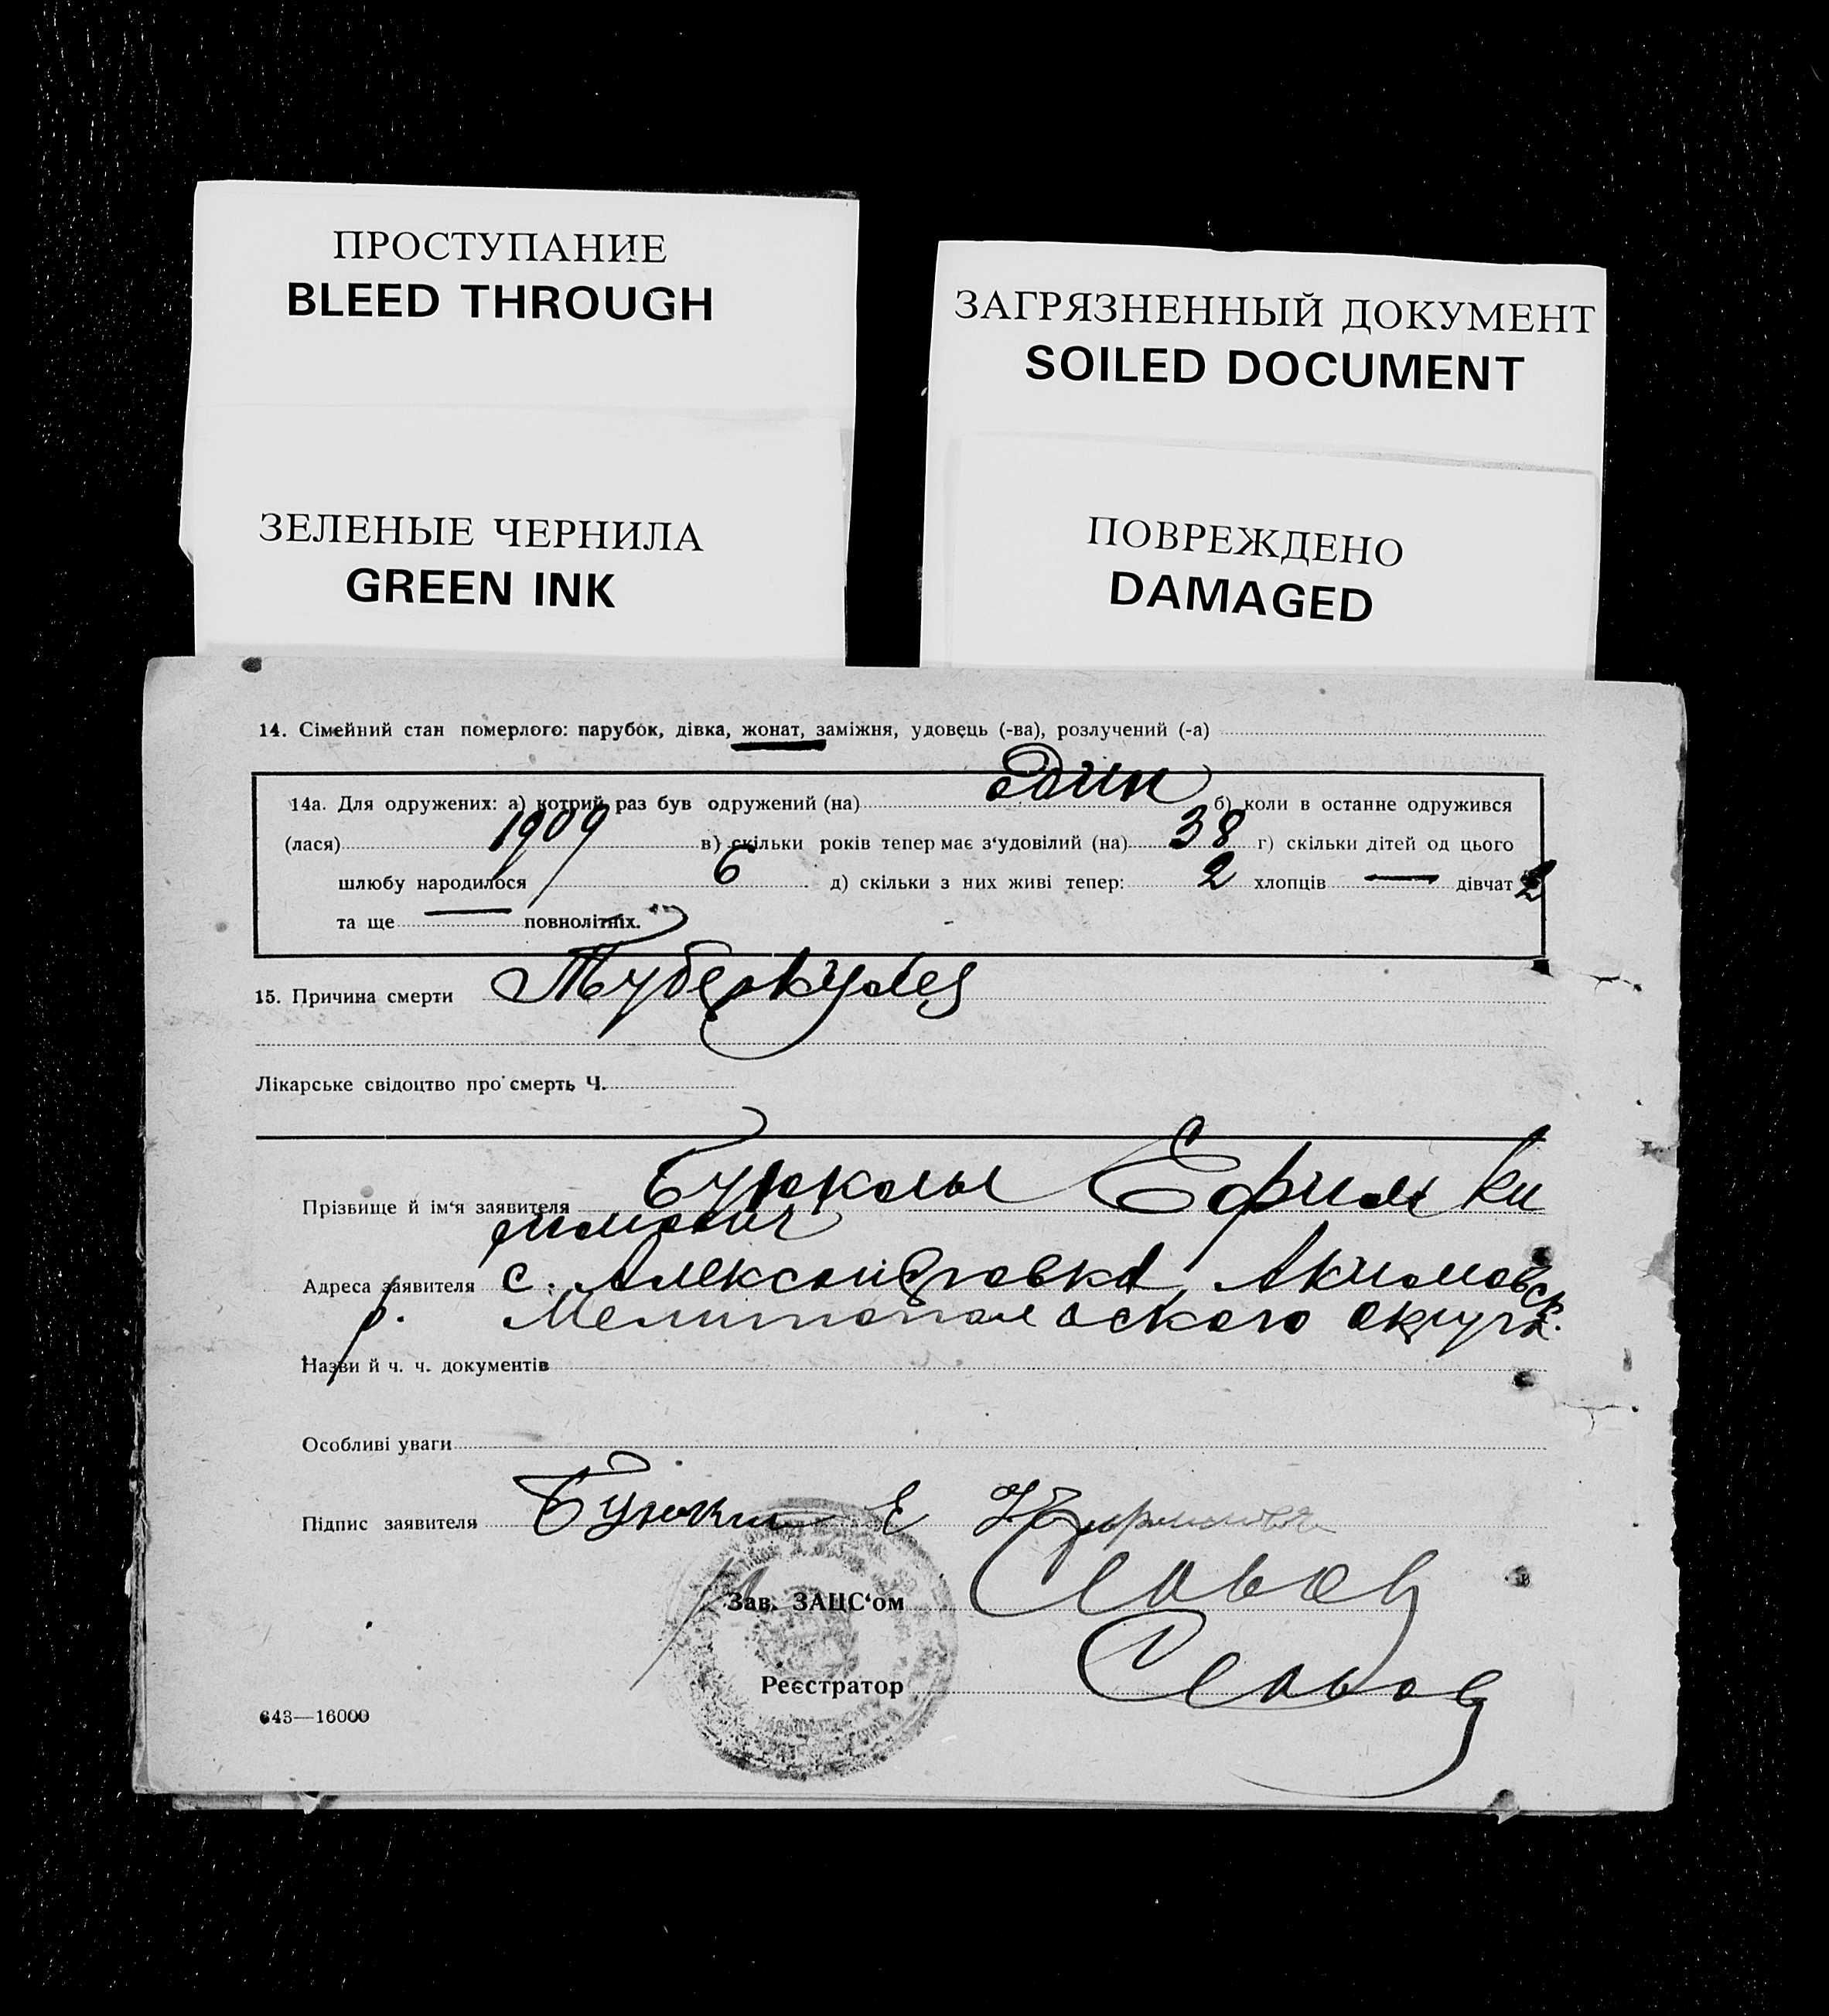 ПРОСТУПАНИЕ
BLEED THROUGH
ЗАГРЯЗНЕННЫЙ ДОКУМЕНТ
SOILED DOCUMENT
ЗЕЛЕНЫЕ ЧЕРНИЛА
GREEN INK
ПОВРЕЖДЕНО
DAMAGED
14. Сімейний стан померлого: парубок, дівка, жонат, заміжня, удовець (-ва), розлучений (-а)
14а. Для одружених: а) котрий раз був одружений (на) один б) коли в останне одружився
(лася) 1909 в) скільки років тепер має з‘удовілий (на) 38 г) скільки дітей од цього
шлюбу народилося 6 д) скільки з них живі тепер: 2 хлопців — дівчат 2
та ще — повнолітніх.
15. Причина смерти Туберкулез
Лікарське свідоцтво про смерть Ч.
Прізвище й ім‘я заявителя Буюклы Ефим Ки
Адреса заявителя с. Александровка Акимовск.
р. Мелитопольского округа.
Назви й ч. ч. документів
Особливі уваги
Підпис заявителя Буюкли Е
Зав. ЗАЦС‘ом
Реєстратор
643—16000